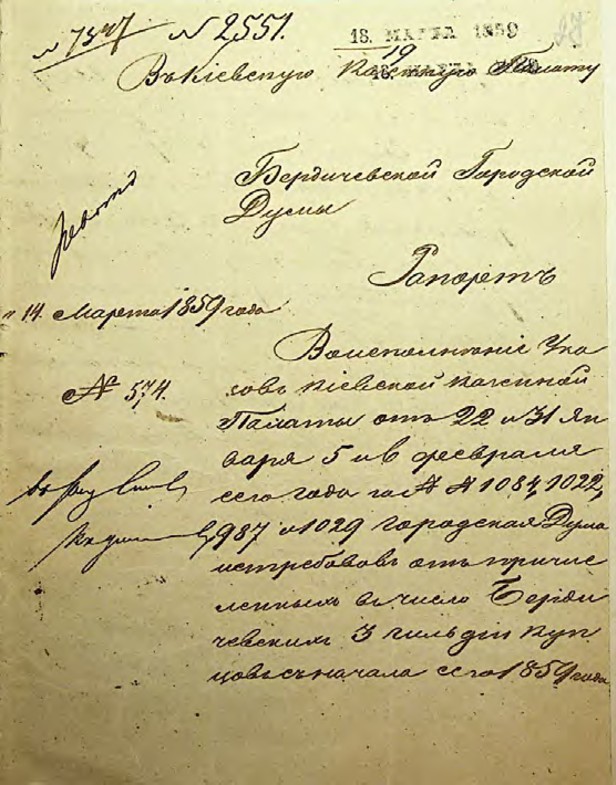 N 7547 N 2551.
18. МАРТА 1859
19
Въ Кіевскую Казенную Палату
Бердичевской Городской
Думы
Рапортъ
" 14. Марта 1859 года
№ 574.
Воисполненіе Ука
зовъ Кіевской Казенной
Палаты отъ 22 и 31 Ян
варя 5 и 6 февраля
сего года за № № 1084, 1022,
987 и 1029 городская Дума
истребовавъ отъ причис
ленныхъ въ число Берди
чевскихъ 3 гильдіи куп
цовъ съ начала сего 1859 года